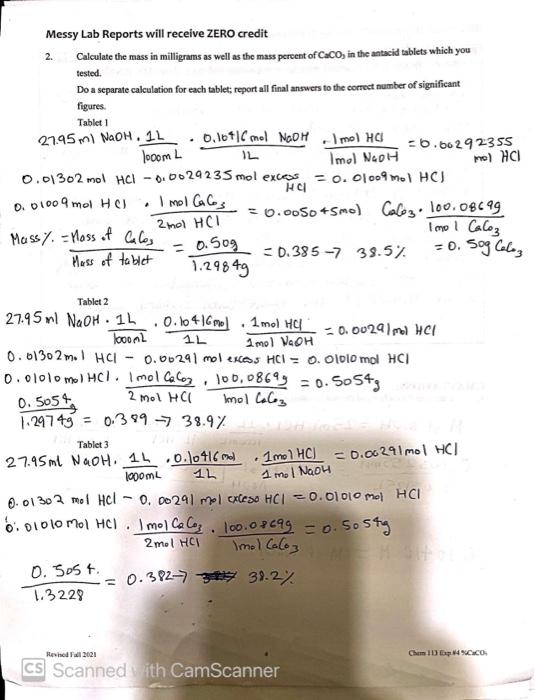 Messy Lab Reports will receive ZERO credit
2. Calculate the mass in milligrams as well as the mass percent of CaCO₃ in the antacid tablets which you
tested.
Do a separate calculation for each tablet; report all final answers to the correct number of significant
figures.
Tablet 1
27.95 ml NaOH . 1L / 1000mL . 0.10416 mol NaOH / 1L . 1 mol HCl / 1mol NaOH = 0.00292355 mol HCl
0.01302 mol HCl - 0.0029235 mol excess HCl = 0.01009 mol HCl
0.01009 mol HCl . 1 mol CaCo₃ / 2mol HCl = 0.005045mol CaCo₃ . 100.0869g / 1mol CaCo₃ = 0.50g CaCo₃
Mass % = Mass of CaCo₃ / Mass of tablet = 0.50g / 1.2984g = 0.385 → 38.5%
Tablet 2
27.95 ml NaOH . 1L / 1000ml . 0.10416mol / 1L . 1mol HCl / 1mol NaOH = 0.00291 mol HCl
0.01302mol HCl - 0.00291 mol excess HCl = 0.01010 mol HCl
0.01010 mol HCl . 1mol CaCo₃ / 2 mol HCl . 100.0869g / 1mol CaCo₃ = 0.5054g
0.5054g / 1.2974g = 0.389 → 38.9%
Tablet 3
27.95mL NaOH . 1L / 1000mL . 0.10416 mol / 1L . 1mol HCl / 1mol NaOH = 0.00291 mol HCl
0.01302 mol HCl - 0.00291 mol excess HCl = 0.01010 mol HCl
0.01010 mol HCl . 1mol CaCo₃ / 2mol HCl . 100.0869g / 1mol CaCo₃ = 0.5054g
0.5054 / 1.3228 = 0.382 → 38.2%
Revised Fall 2021 Chem 113 Exp #4 %CaCO₃
CS Scanned with CamScanner